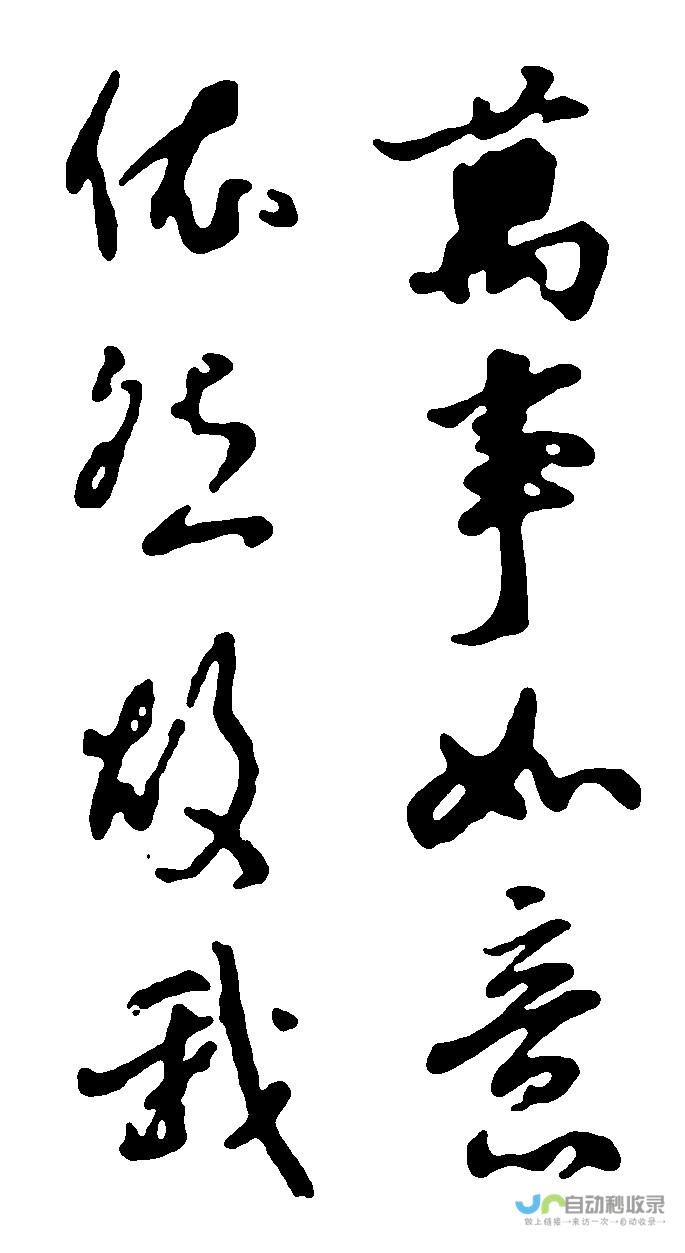 萬事如意
依然故我
自动秒收录
做上链接→来访一次→自动收录→